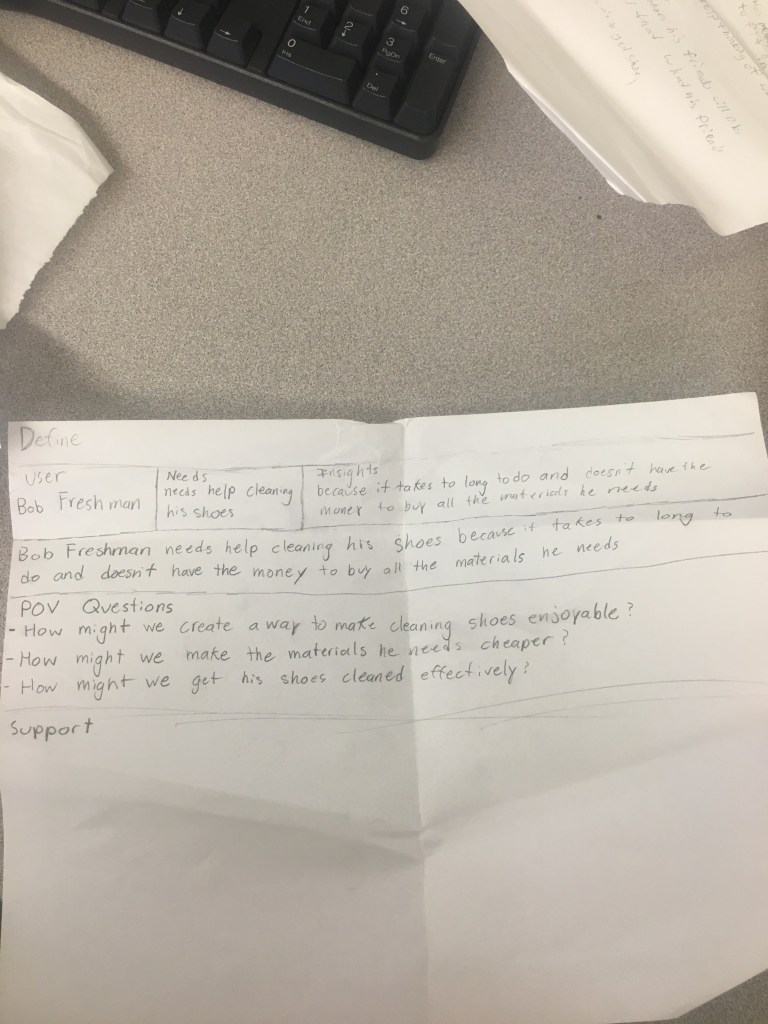 6
1
End
2
3
PgDn
Enter
0
Ins
.
Del
his friend will
that what his friend
Define
User
Bob Freshman
Needs
needs help cleaning
his shoes
Insights
because it takes to long to do and doesn't have the
money to buy all the materials he needs
Bob Freshman needs help cleaning his shoes because it takes to long to
do and doesn't have the money to buy all the materials he needs
POV Questions
- How might we create a way to make cleaning shoes enjoyable?
- How might we make the materials he needs cheaper?
- How might we get his shoes cleaned effectively?
Support